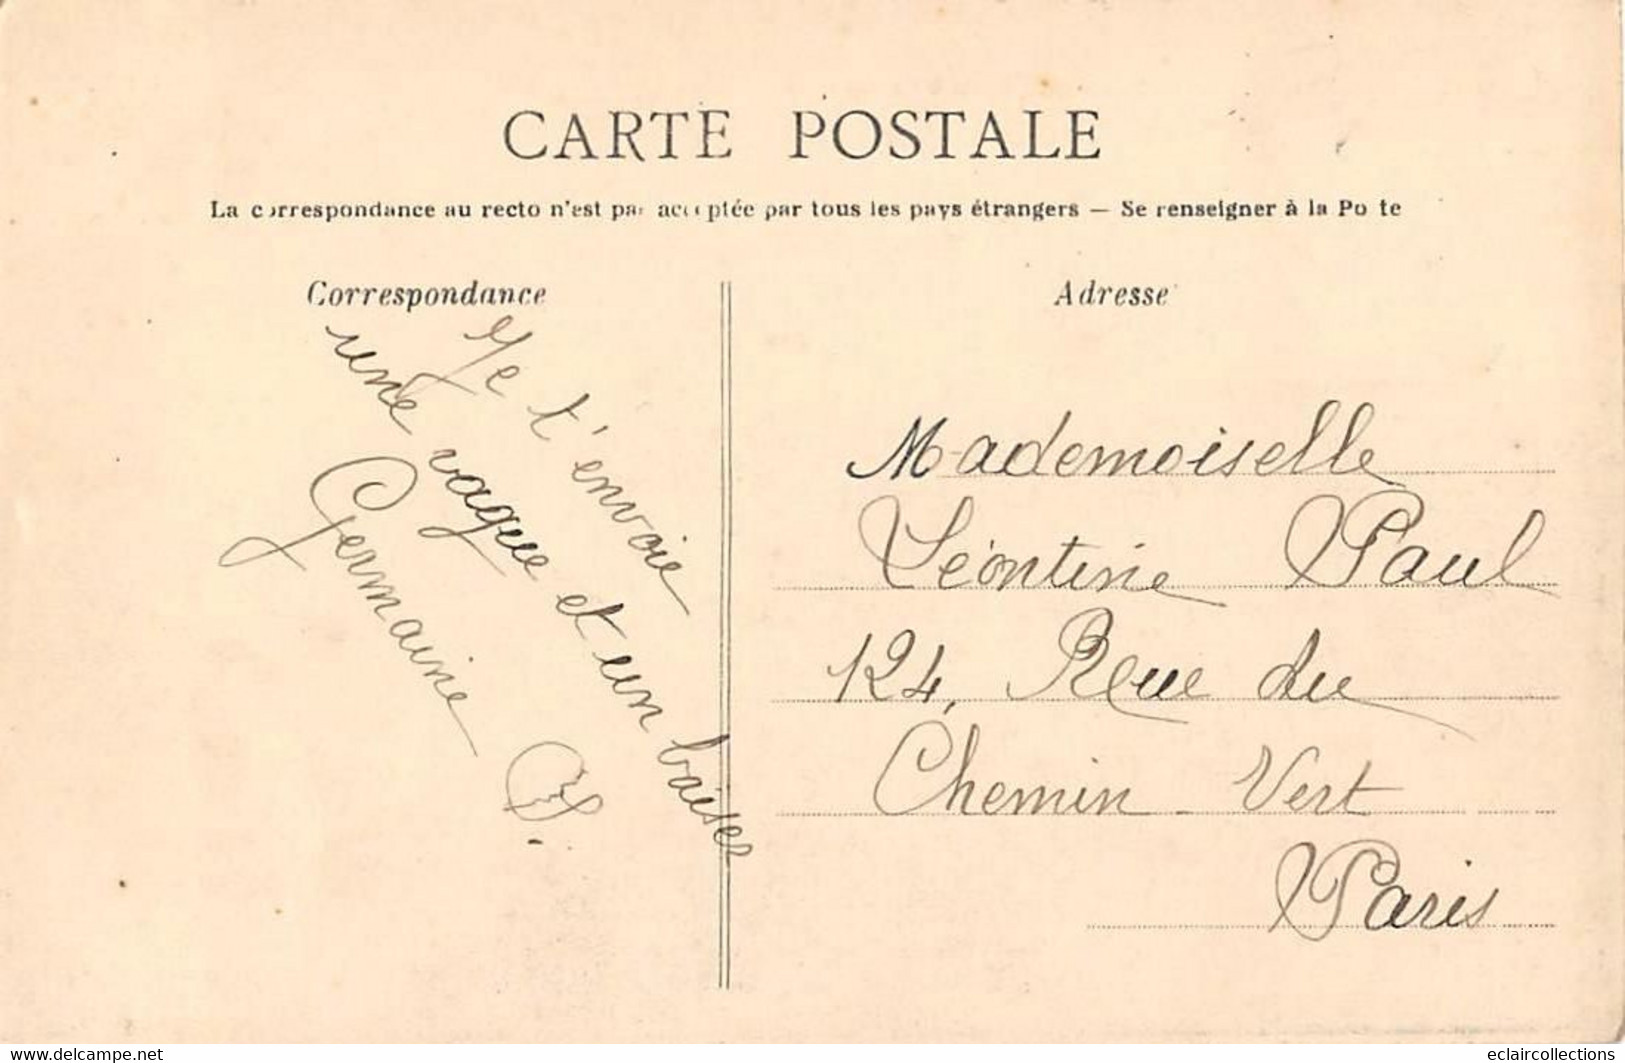 CARTE POSTALE
La correspondance au recto n'est pas acceptée par tous les pays étrangers — Se renseigner à la Poste
Correspondance
Je t'envoie
une vague et un baiser
Germaine
Adresse
Mademoiselle
Léontine Paul
124, Rue du
Chemin-Vert
Paris
www.delcampe.net
eclaircollections